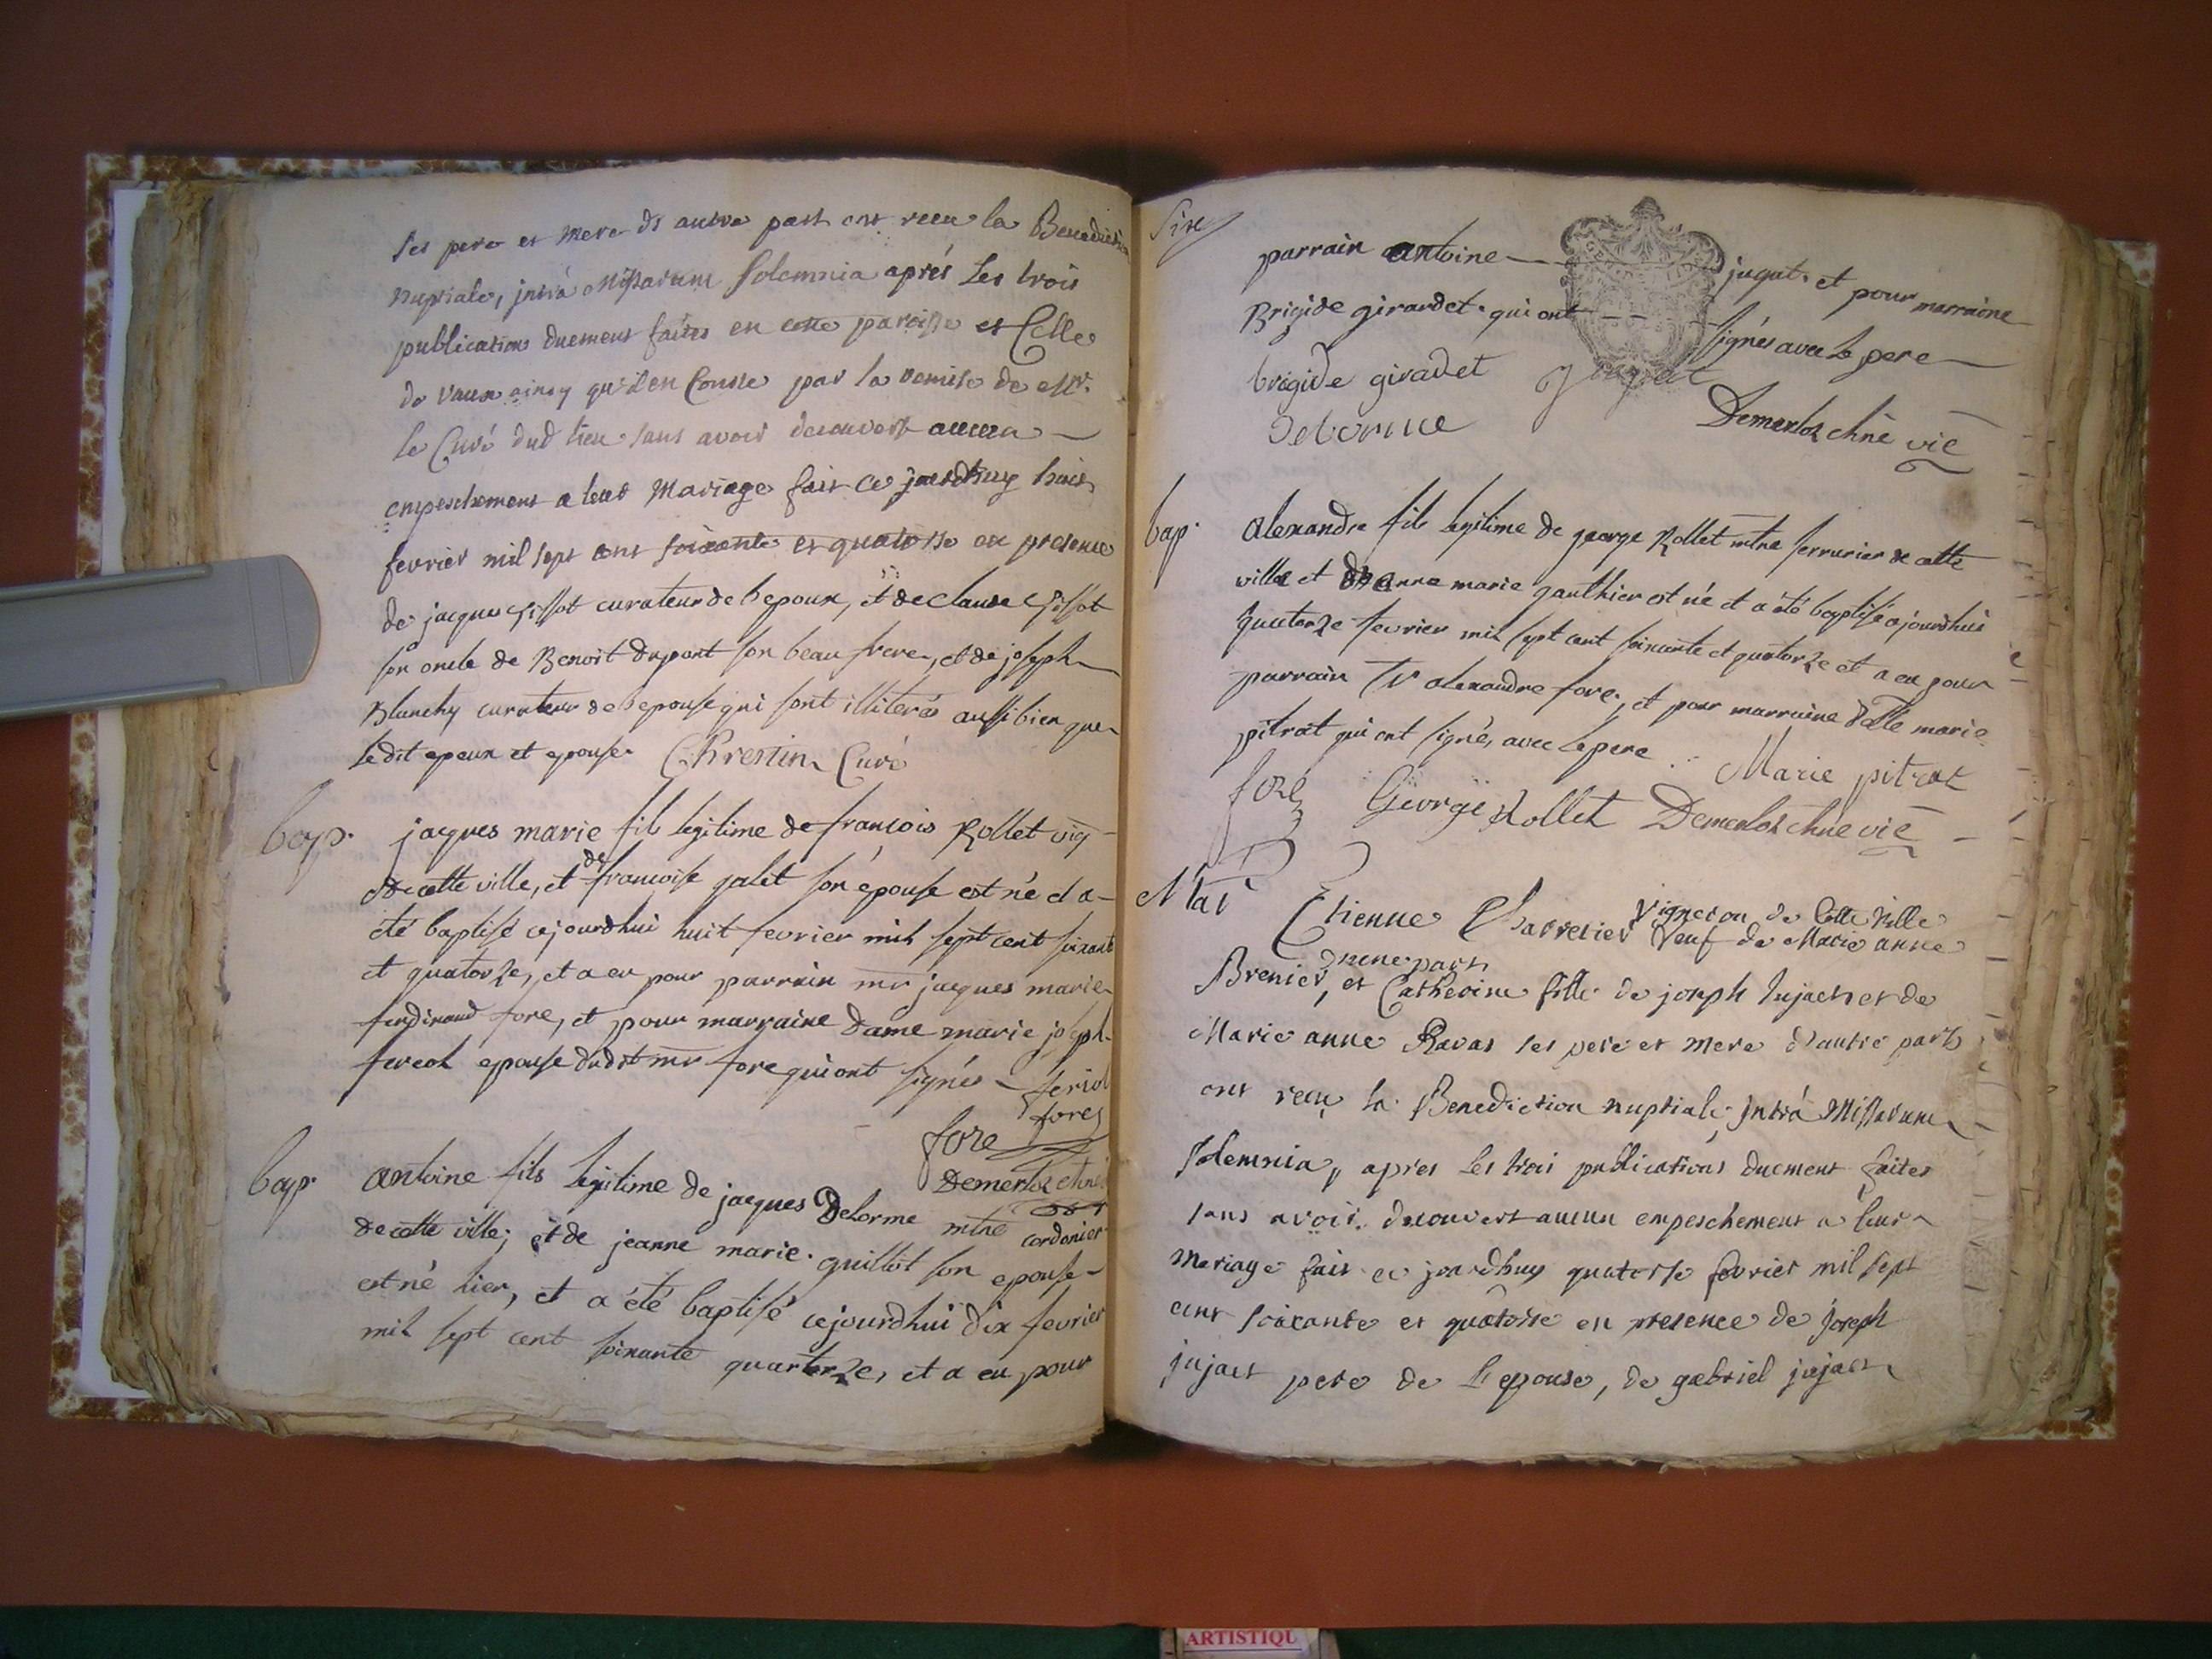 ses pere et mere d'autre part ont receu la Benediction
nuptiale, intrà missarum solemnia aprés Les trois
publications duement faites en cette paroisse et Celle
de vaux ainsy qu'il en Conste par la remise de Mr.
le Curé dud lieu sans avoir decouvert aucun
empeschement a leur Mariage fait ce jourdhuy huit
fevrier mil sept cent soixante et quatorse en presence
de jacques gissot curateur de l'epoux, et de claude gissot
son oncle de Benoit dupont son beau frere, et de joseph
Blanchy curateur de l'epouse qui sont illiterés aussi bien que
le dit epoux et epouse. Chrestin Curé
bap. jacques marie fils legitime de françois Rollet vig
de cette ville, et de francoise galet son épouse est né et a
été baptisé cejourdhui huit fevrier mil sept cent soixante
et quatorze, et a eu pour parrain mr jacques marie
ferdinand fore, et pour marraine dame marie joseph
fereol epouse dudt mr fore qui ont signés feriol
fore
fore
Demerloz chne
bap. antoine fils legitime de jacques Delorme mtre cordonier
de cette ville; et de jeanne marie guillot son epouse
est né hier, et a été baptisé cejourdhui dix fevrier
mil sept cent soixante quartorze, et a eu pour
Six
parrain antoine jugat. et pour marraine
Brigide girardet. qui ont signés avec le pere
brigide giradet jougat
Delorme Demerloz chne vic
bap. alexandre fils legitime de george Rollet mtre serrurier de cette
ville et d'anne marie gauthier est né et a été baptisé cejourdhui
quatorze fevrier mil sept cent soixante et quatorze et a eu pour
parrain Sr alexandre fore, et pour marraine dlle marie
pitrat qui ont signé, avec le pere Marie pitrat
fore George Rollet Demerloz chne vic
Mar Etienne Charretier vigneron de Cette Ville
Veuf de Marie anne
Brenier, d'une part, et Catherine fille de joseph Jujact et de
Marie anne Ravas ses pere et mere d'autre part
ont receu la Benediction nuptiale intrà Missarum
solemnia, apres Les trois publications duement faites
sans avoir decouvert aucun empeschement a leur
Mariage fait ce jourdhuy quatorse fevrier mil sept
cent soixante et quatorse en presence de Joseph
jujact pere de L'epouse, de gabriel jujact
ARTISTIQU